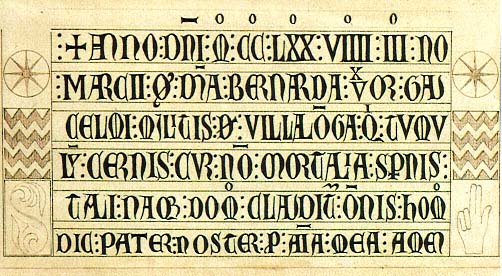 ✝ANNO:DNI:M:CC:LXX:VIIII:III:NO
MARCII:O:DNA:BERNARDA:VXOR:GAU
CELMI:MILITIS:D:VILLALOGA:Q:TVMV
LV:CERNIS:CVR:NO:MORTALIA:SPNIS:
TALI:NAQ:DOM:CLAUDIT:ONIS:HOM
DIC:PATER:NOSTER:P:AIA:MEA:AMEN